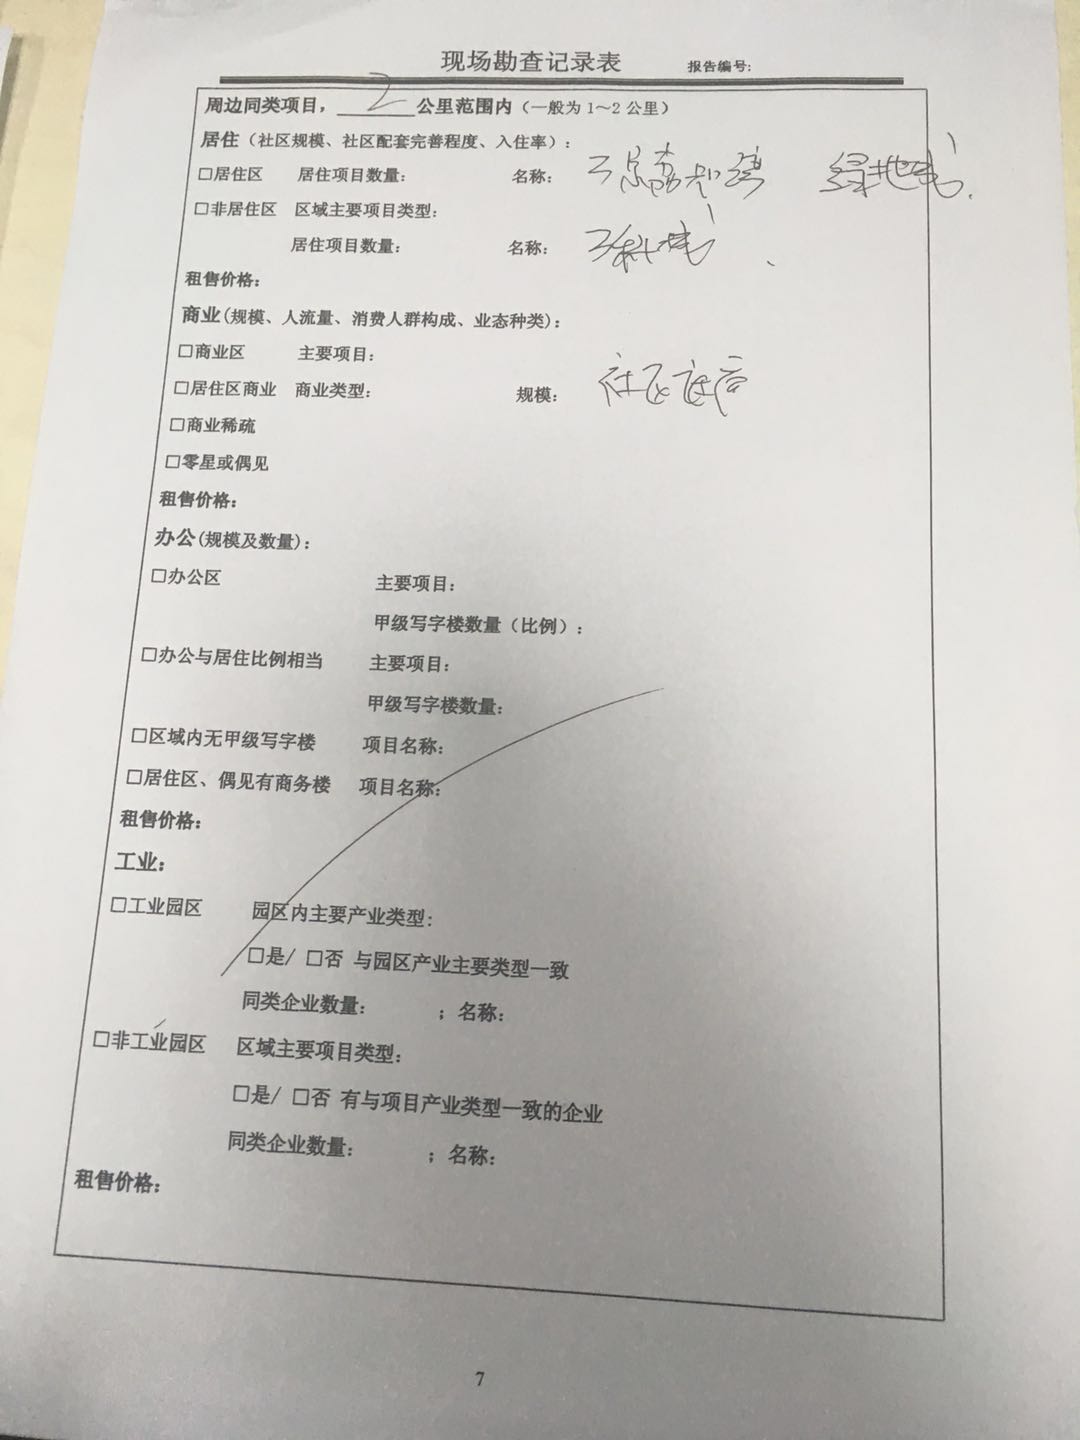 现场勘查记录表 报告编号:
周边同类项目， 2 公里范围内（一般为 1～2 公里）
居住（社区规模、社区配套完善程度、入住率）:
□居住区 居住项目数量: 名称: 绿地城
□非居住区 区域主要项目类型:
居住项目数量: 名称:
租售价格:
商业(规模、人流量、消费人群构成、业态种类):
□商业区 主要项目:
□居住区商业 商业类型: 规模: 社区底商
□商业稀疏
□零星或偶见
租售价格:
办公(规模及数量):
□办公区 主要项目:
甲级写字楼数量（比例）:
□办公与居住比例相当 主要项目:
甲级写字楼数量:
□区域内无甲级写字楼 项目名称:
□居住区、偶见有商务楼 项目名称:
租售价格:
工业:
□工业园区 园区内主要产业类型:
□是/ □否 与园区产业主要类型一致
同类企业数量: ；名称:
□非工业园区 区域主要项目类型:
□是/ □否 有与项目产业类型一致的企业
同类企业数量: ；名称:
租售价格:
7